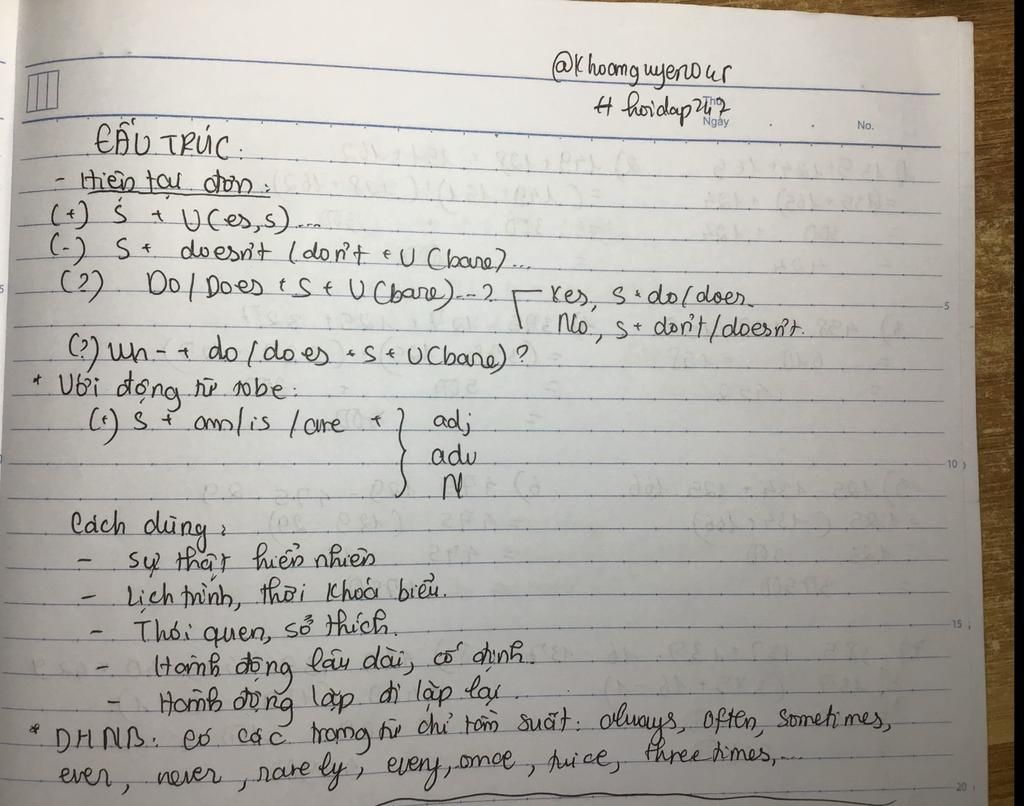 @Khoanguyen0ur
# hoidap247
Thứ
Ngày
No.
CẤU TRÚC:
- Hiện tại đơn:
(+) S + V(es,s)...
(-) S + doesn't / don't + V(bare)...
(?) Do/Does + S + V(bare)...? Yes, S + do/does.
No, S + don't/doesn't.
(?) Wh- + do/does + S + V(bare)?
* Với động từ tobe:
(+) S + am/is/are + } adj
adv
N
Cách dùng:
- Sự thật hiển nhiên
- Lịch trình, thời khoá biểu.
- Thói quen, sở thích.
- Hành động lâu dài, cố định.
- Hành động lặp đi lặp lại.
* DHNB: có các trạng từ chỉ tần suất: always, often, sometimes,
ever, never, rarely, every, once, twice, three times,...
5
10
15
20